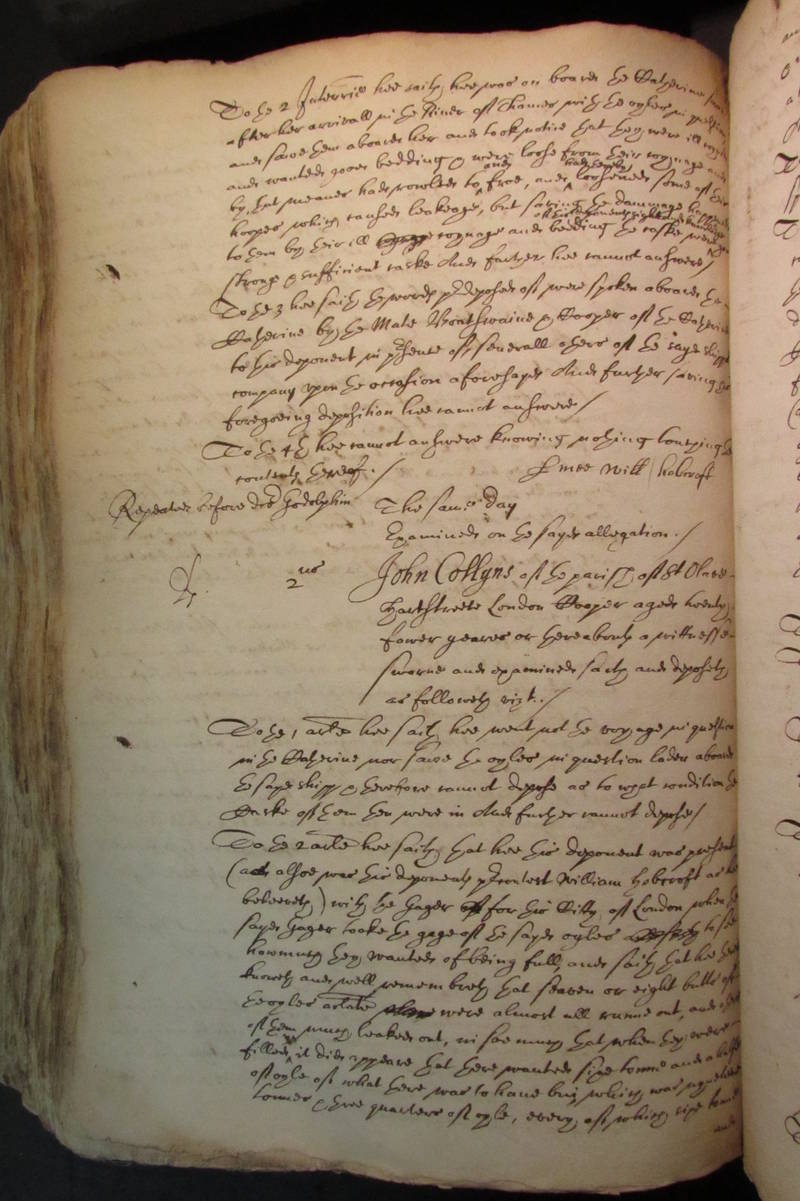 To the 2 Interrie hee saith, hee was on board the Katherine
after her arrivall in the River of Thames with the oyles in question
and sawe them aboard her and tooke notice that they were ill
and wanted good bedding & were loose from their coynage and
by that meanes had rowled to and froe, and had thereby loosened some of the
hoopes which caused leakage, but saving the dammage
to them by their ill coynage and bedding the caske were
strong & sufficient caske And further hee cannot answere /
To the 3 hee saith the words predeposed of were spoken aboard the
Katherine by the Mate Boatswaine & Cooper of the Katherine
to this deponent in presence of severall others of the sayd shipps
company upon the occasion aforesayd And further saving his
foregoeing deposition hee cannot answere /
To the 4th hee cannot answere knowing nothing touching the
contents thereof. /
Will hobcroft
Repeated before Dr Godolphin
The same day
Examined on the sayd allegation. /
2us
John Collyns of the parish of St Olave
Hartstreete London Cooper aged twenty
fower yeares or thereabouts a wittnesse
sworne and examined saith and deposeth
as followeth vizt. /
To the 1 artle hee saith hee went not the voyage in question
in the Katherine nor sawe the oyles in question laden aboard
the sayd shipp & therefore cannot depose as to what condition the
Caske of them then were in And further cannot depose /
To the 2 artle hee saith that hee this deponent was present
(as alsoe was this deponents precontest William Hobcroft as hee
beleeveth) with the Gager for this Citty of London when the
sayd Gager tooke the gage of the sayd oyles to see
howmuch they wanted of being full, and saith that hee
knoweth and well remembreth that seaven or eight butts of
the oyles arlate were almost all runne out, and
of them much leaked out, in soe much that when they were
filled, it did appeare that there wanted sixe tonne and a halfe
of oyle of what there was to have bin, which was
tonnes & three quarters of oyle, every of which sixe tonnes
and